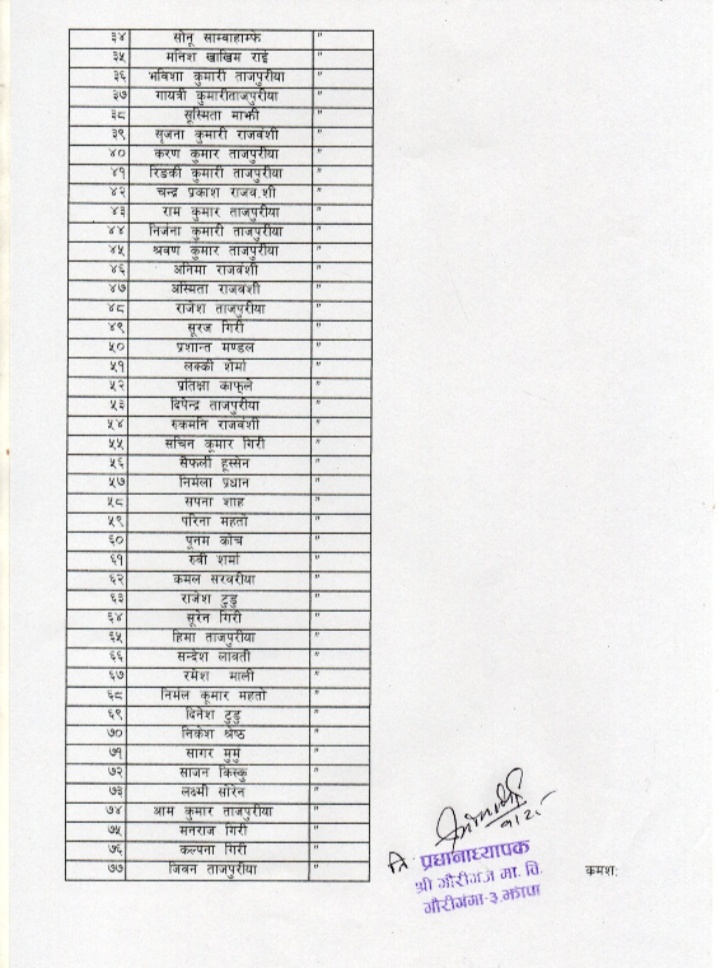 ३४ सोनू साम्बाहाम्फे "
३५ मनिश खाखिम राई "
३६ भविशा कुमारी ताजपुरीया "
३७ गायत्री कुमारीताजपुरीया "
३८ सूस्मिता माझी "
३९ सृजना कुमारी राजवंशी "
४० करण कुमार ताजपुरीया "
४१ रिडकी कुमारी ताजपुरीया "
४२ चन्द्र प्रकाश राजव.शी "
४३ राम कुमार ताजपुरीया "
४४ निर्जना कुमारी ताजपुरीया "
४५ श्रवण कुमार ताजपुरीया "
४६ अनिमा राजवंशी "
४७ अस्मिता राजवंशी "
४८ राजेश ताजपुरीया "
४९ सूरज गिरी "
५० प्रशान्त मण्डल "
५१ लक्की शेर्मा "
५२ प्रतिक्षा काफ्ले "
५३ दिपेन्द्र ताजपुरीया "
५४ रुकमनि राजवंशी "
५५ सचिन कूमार गिरी "
५६ सैफली हूस्सेन "
५७ निर्मला प्रधान "
५८ सपना शाह "
५९ परिना महतो "
६० पूनम कोच "
६१ रुवी शर्मा "
६२ कमल सरवरीया "
६३ राजेश टुडु "
६४ सूरेन गिरी "
६५ हिमा ताजपुरीया "
६६ सन्देश लावती "
६७ रमेश माली "
६८ निर्मल कूमार महतो "
६९ दिनेश टुडु "
७० निकेश श्रेष्ठ "
७१ सागर मुर्मु "
७२ साजन किस्कु "
७३ लक्ष्मी सोरेन "
७४ आम कुमार ताजपुरीया "
७५ मनराज गिरी "
७६ कल्पना गिरी "
७७ जिवन ताजपुरीया "
नि. प्रधानाध्यापक
श्री गौरीगंज मा. वि.
गौरीगंगा-३, झापा
कमशः